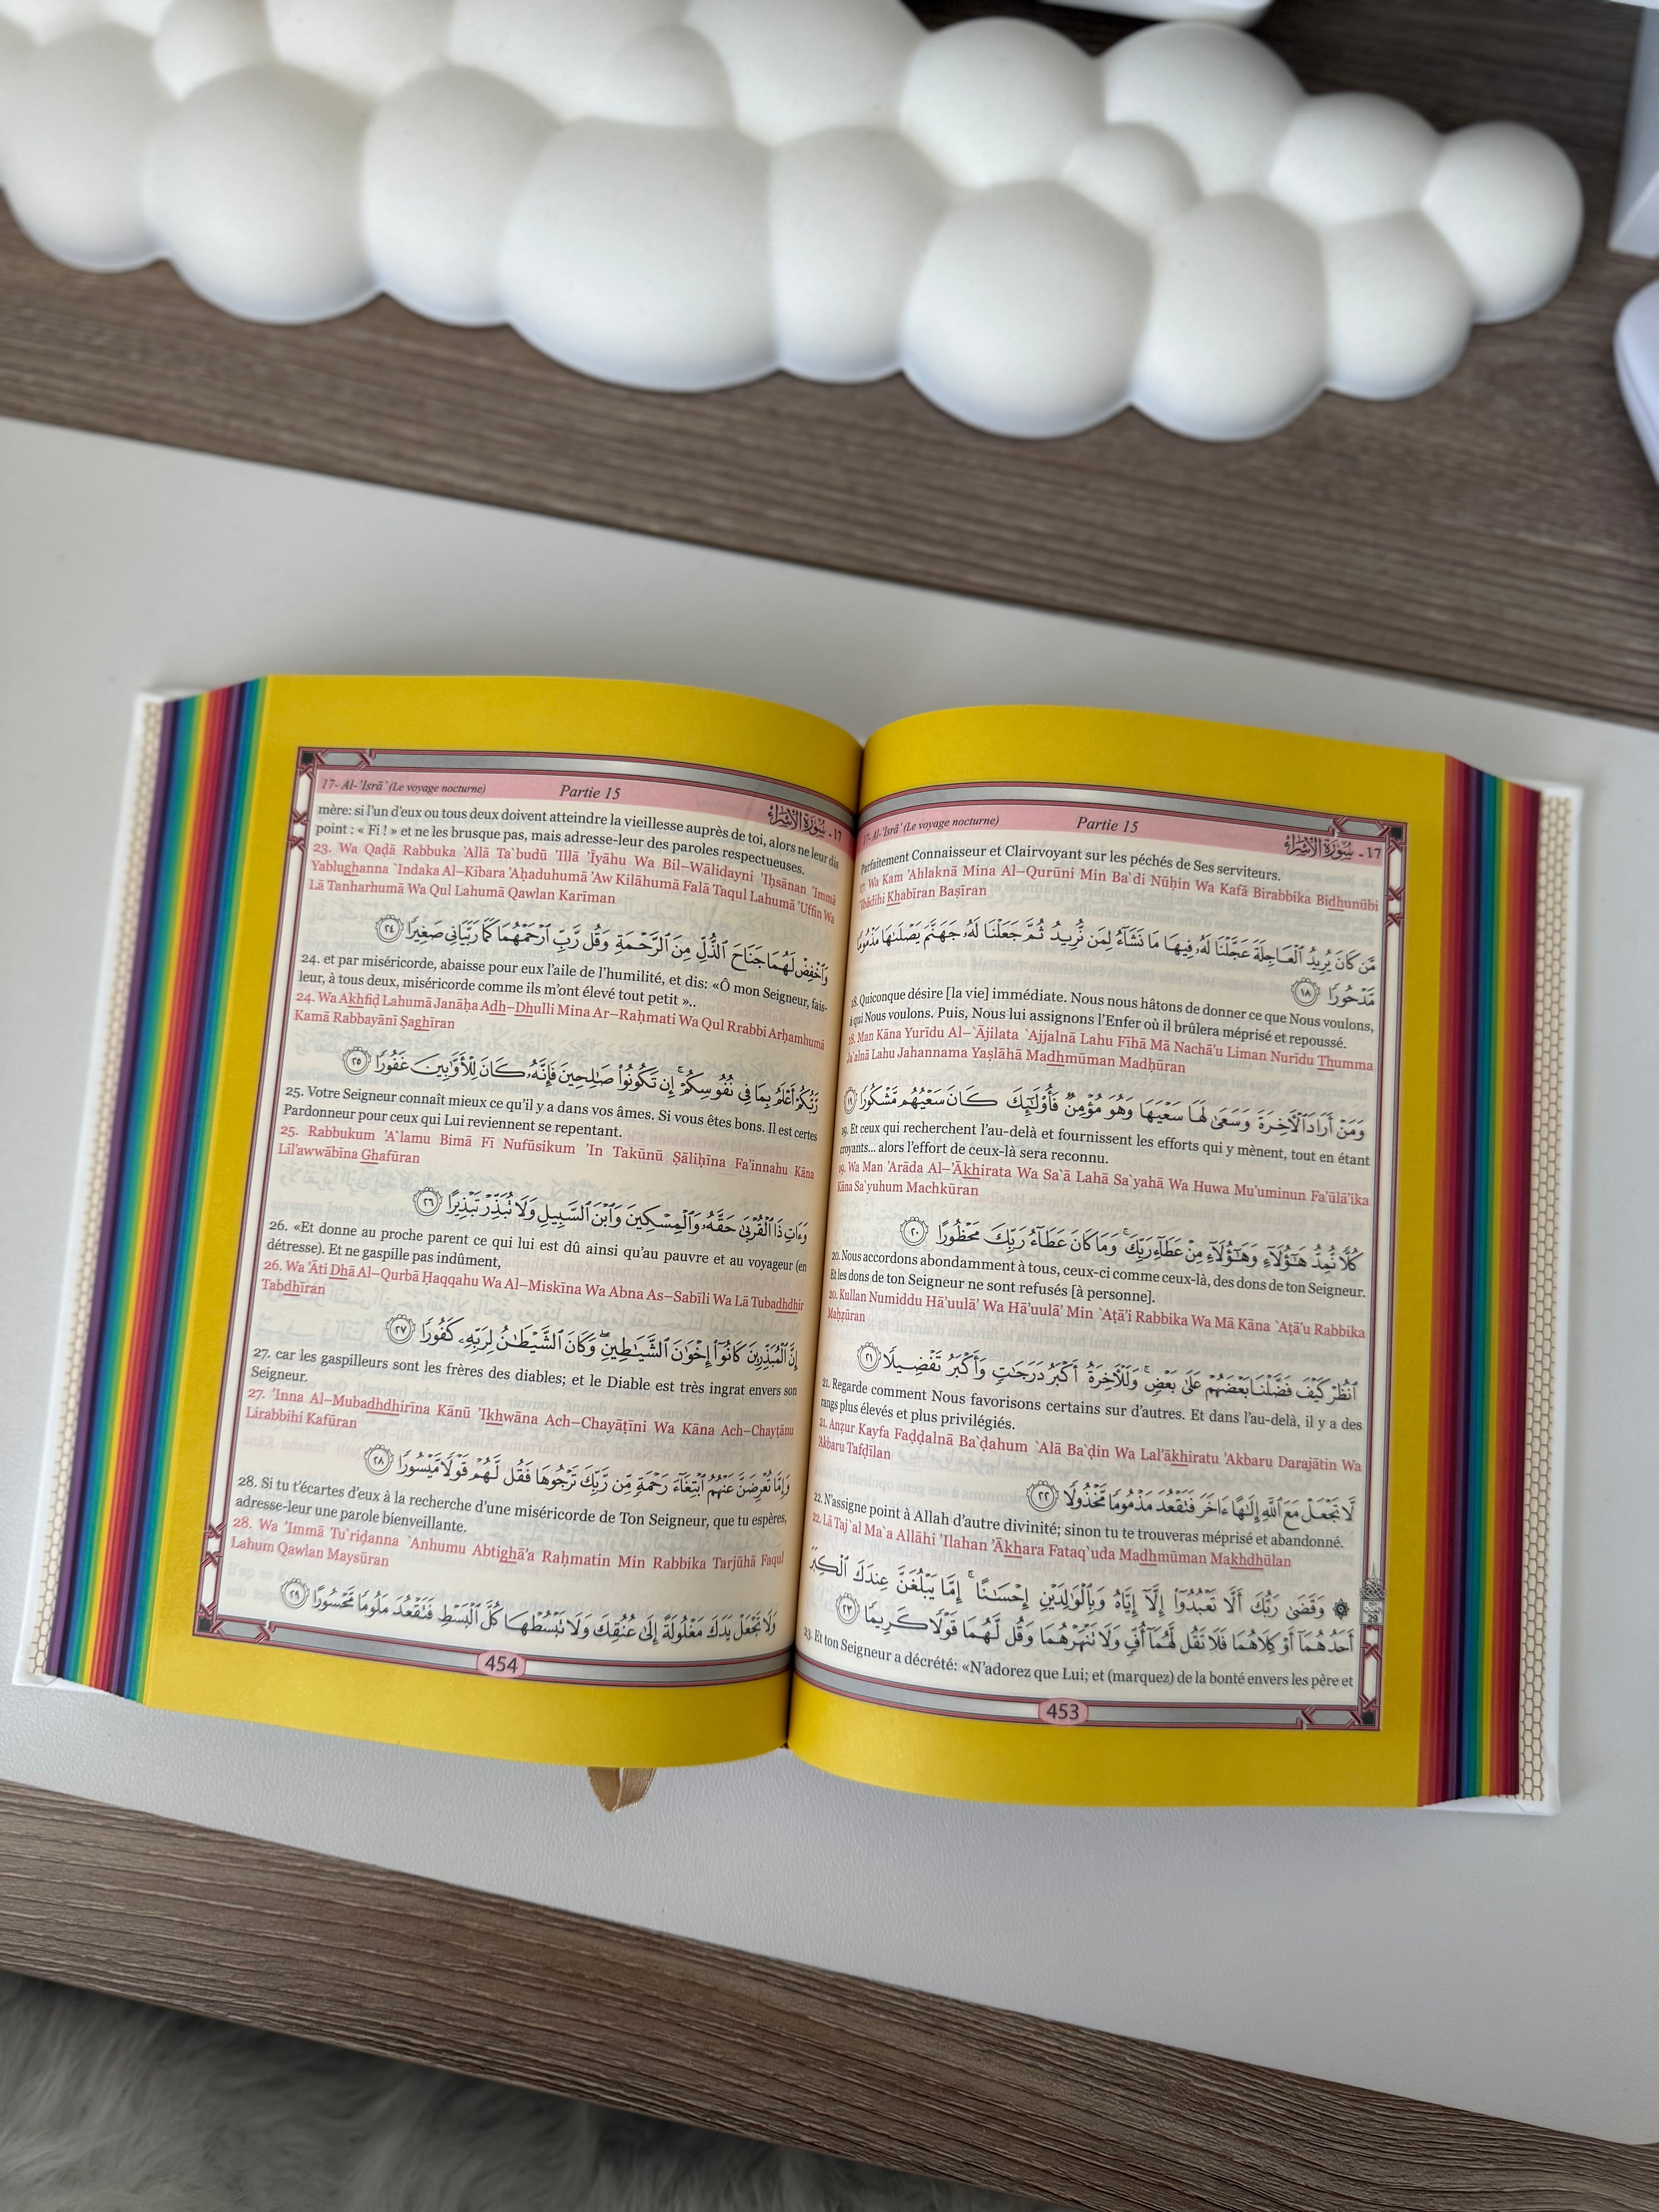 17- Al-'Isrā' (Le voyage nocturne) Partie 15 ١٧ - سُورَةُ الإِسْرَاءِ
Parfaitement Connaisseur et Clairvoyant sur les péchés de Ses serviteurs.
17. Wa Kam 'Ahlaknā Mina Al–Qurūni Min Ba`di Nūĥin Wa Kafá Birabbika Bidhunūbi
`Ibādihi Khabīran Başīran
مَّن كَانَ يُرِيدُ ٱلْعَاجِلَةَ عَجَّلْنَا لَهُۥ فِيهَا مَا نَشَآءُ لِمَن نُّرِيدُ ثُمَّ جَعَلْنَا لَهُۥ جَهَنَّمَ يَصْلَىٰهَا مَذْمُومًا
مَّدْحُورًا ١٨
18. Quiconque désire [la vie] immédiate. Nous nous hâtons de donner ce que Nous voulons,
à qui Nous voulons. Puis, Nous lui assignons l'Enfer où il brûlera méprisé et repoussé.
18. Man Kāna Yurīdu Al–`Ājilata `Ajjalnā Lahu Fīhā Mā Nachā'u Liman Nurīdu Thumma
Ja`alnā Lahu Jahannama Yaşlāhā Madhmūman Madĥūran
وَمَنْ أَرَادَ ٱلْءَاخِرَةَ وَسَعَىٰ لَهَا سَعْيَهَا وَهُوَ مُؤْمِنٌ فَأُو۟لَٰٓئِكَ كَانَ سَعْيُهُم مَّشْكُورًا ١٩
19. Et ceux qui recherchent l'au-delà et fournissent les efforts qui y mènent, tout en étant
croyants... alors l'effort de ceux-là sera reconnu.
19. Wa Man 'Arāda Al–'Ākhirata Wa Sa`á Lahā Sa`yahā Wa Huwa Mu'uminun Fa'ūlā'ika
Kāna Sa`yuhum Machkūran
كُلًّا نُّمِدُّ هَٰٓؤُلَآءِ وَهَٰٓؤُلَآءِ مِنْ عَطَآءِ رَبِّكَ ۚ وَمَا كَانَ عَطَآءُ رَبِّكَ مَحْظُورًا ٢٠
20. Nous accordons abondamment à tous, ceux-ci comme ceux-là, des dons de ton Seigneur.
Et les dons de ton Seigneur ne sont refusés [à personne].
20. Kullan Numiddu Hā'uulā' Wa Hā'uulā' Min `Aţā'i Rabbika Wa Mā Kāna `Aţā'u Rabbika
Maĥžūran
ٱنظُرْ كَيْفَ فَضَّلْنَا بَعْضَهُمْ عَلَىٰ بَعْضٍ ۚ وَلَلْءَاخِرَةُ أَكْبَرُ دَرَجَٰتٍ وَأَكْبَرُ تَفْضِيلًا ٢١
21. Regarde comment Nous favorisons certains sur d'autres. Et dans l'au-delà, il y a des
rangs plus élevés et plus privilégiés.
21. Anžur Kayfa Fađđalnā Ba`đahum `Alá Ba`đin Wa Lal'ākhiratu 'Akbaru Darajātin Wa
'Akbaru Tafđīlan
لَّا تَجْعَلْ مَعَ ٱللَّهِ إِلَٰهًا ءَاخَرَ فَتَقْعُدَ مَذْمُومًا مَّخْذُولًا ٢٢
22. N'assigne point à Allah d'autre divinité; sinon tu te trouveras méprisé et abandonné.
22. Lā Taj`al Ma`a Allāhi 'Ilahan 'Ākhara Fataq`uda Madhmūman Makhdhūlan
۞ وَقَضَىٰ رَبُّكَ أَلَّا تَعْبُدُوٓا۟ إِلَّآ إِيَّاهُ وَبِٱلْوَٰلِدَيْنِ إِحْسَٰنًا ۚ إِمَّا يَبْلُغَنَّ عِندَكَ ٱلْكِبَرَ
أَحَدُهُمَآ أَوْ كِلَاهُمَا فَلَا تَقُل لَّهُمَآ أُفٍّ وَلَا تَنْهَرْهُمَا وَقُل لَّهُمَا قَوْلًا كَرِيمًا ٢٣
23. Et ton Seigneur a décrété: «N'adorez que Lui; et (marquez) de la bonté envers les père et
29
453
17- Al-'Isrā' (Le voyage nocturne) Partie 15 ١٧ - سُورَةُ الإِسْرَاءِ
mère: si l'un d'eux ou tous deux doivent atteindre la vieillesse auprès de toi, alors ne leur dis
point : « Fi ! » et ne les brusque pas, mais adresse-leur des paroles respectueuses.
23. Wa Qađá Rabbuka 'Allā Ta`budū 'Illā 'Īyāhu Wa Bil–Wālidayni 'Iĥsānan 'Immā
Yablughanna `Indaka Al–Kibara 'Aĥaduhumā 'Aw Kilāhumā Falā Taqul Lahumā 'Uffin Wa
Lā Tanharhumā Wa Qul Lahumā Qawlan Karīman
وَٱخْفِضْ لَهُمَا جَنَاحَ ٱلذُّلِّ مِنَ ٱلرَّحْمَةِ وَقُل رَّبِّ ٱرْحَمْهُمَا كَمَا رَبَّيَانِى صَغِيرًا ٢٤
24. et par miséricorde, abaisse pour eux l'aile de l'humilité, et dis: «Ô mon Seigneur, fais-
leur, à tous deux, miséricorde comme ils m'ont élevé tout petit »..
24. Wa Akhfiđ Lahumā Janāĥa Adh–Dhulli Mina Ar–Raĥmati Wa Qul Rrabbi Arĥamhumā
Kamā Rabbayānī Şaghīran
رَّبُّكُمْ أَعْلَمُ بِمَا فِى نُفُوسِكُمْ ۚ إِن تَكُونُوا۟ صَٰلِحِينَ فَإِنَّهُۥ كَانَ لِلْأَوَّٰبِينَ غَفُورًا ٢٥
25. Votre Seigneur connaît mieux ce qu'il y a dans vos âmes. Si vous êtes bons. Il est certes
Pardonneur pour ceux qui Lui reviennent se repentant.
25. Rabbukum 'A`lamu Bimā Fī Nufūsikum 'In Takūnū Şāliĥīna Fa'innahu Kāna
Lil'awwābīna Ghafūran
وَءَاتِ ذَا ٱلْقُرْبَىٰ حَقَّهُۥ وَٱلْمِسْكِينَ وَٱبْنَ ٱلسَّبِيلِ وَلَا تُبَذِّرْ تَبْذِيرًا ٢٦
26. «Et donne au proche parent ce qui lui est dû ainsi qu'au pauvre et au voyageur (en
détresse). Et ne gaspille pas indûment,
26. Wa 'Āti Dhā Al–Qurbá Ĥaqqahu Wa Al–Miskīna Wa Abna As–Sabīli Wa Lā Tubadhdhir
Tabdhīran
إِنَّ ٱلْمُبَذِّرِينَ كَانُوٓا۟ إِخْوَٰنَ ٱلشَّيَٰطِينِ ۖ وَكَانَ ٱلشَّيْطَٰنُ لِرَبِّهِۦ كَفُورًا ٢٧
27. car les gaspilleurs sont les frères des diables; et le Diable est très ingrat envers son
Seigneur.
27. 'Inna Al–Mubadhdhirīna Kānū 'Ikhwāna Ach–Chayāţīni Wa Kāna Ach–Chayţānu
Lirabbihi Kafūran
وَإِمَّا تُعْرِضَنَّ عَنْهُمُ ٱبْتِغَآءَ رَحْمَةٍ مِّن رَّبِّكَ تَرْجُوهَا فَقُل لَّهُمْ قَوْلًا مَّيْسُورًا ٢٨
28. Si tu t'écartes d'eux à la recherche d'une miséricorde de Ton Seigneur, que tu espères,
adresse-leur une parole bienveillante.
28. Wa 'Immā Tu`riđanna `Anhumu Abtighā'a Raĥmatin Min Rabbika Tarjūhā Faqul
Lahum Qawlan Maysūran
وَلَا تَجْعَلْ يَدَكَ مَغْلُولَةً إِلَىٰ عُنُقِكَ وَلَا تَبْسُطْهَا كُلَّ ٱلْبَسْطِ فَتَقْعُدَ مَلُومًا مَّحْسُورًا ٢٩
454